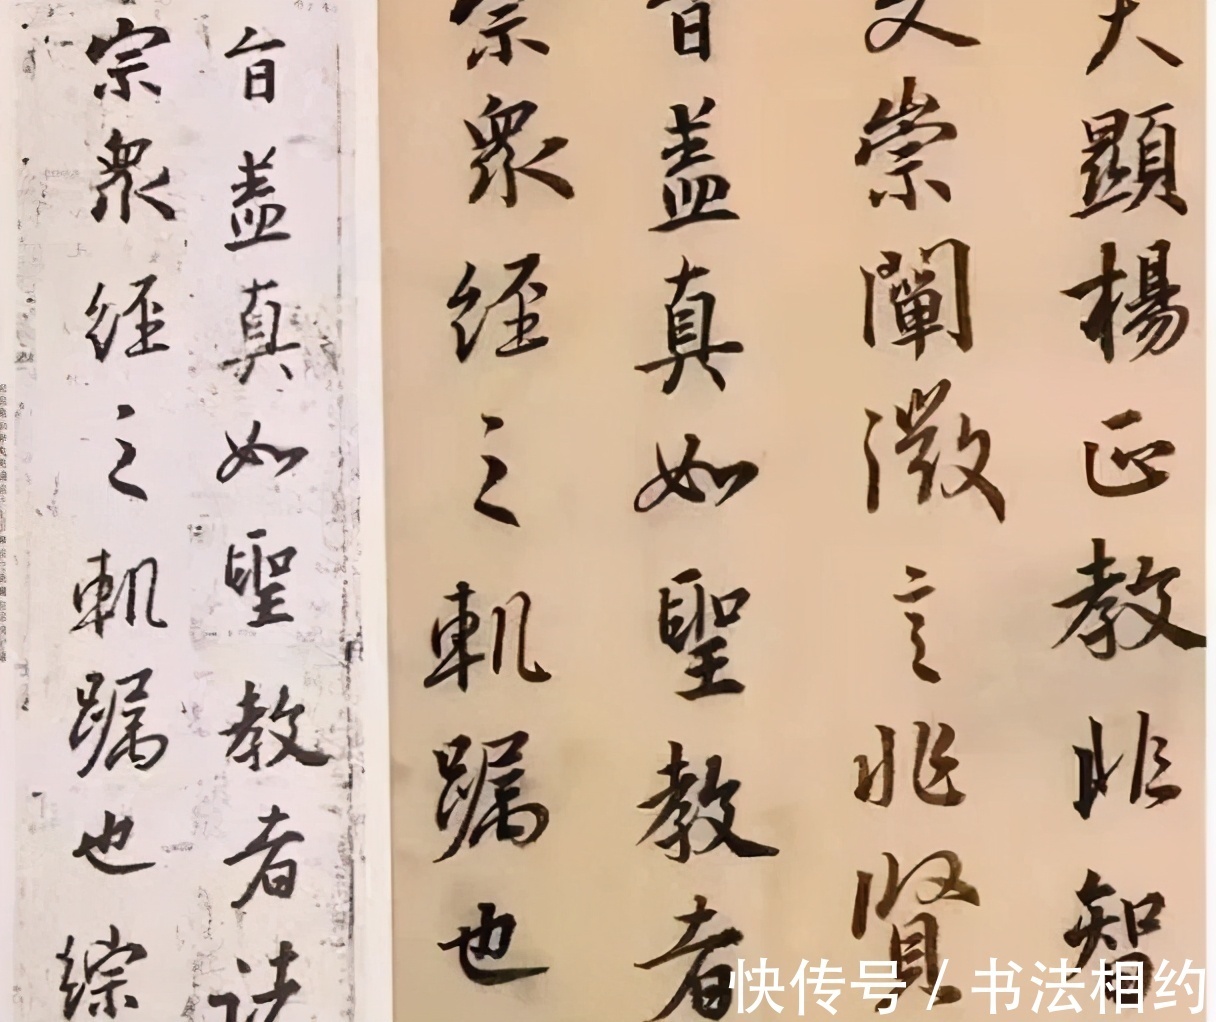 夫顯揚正教非智
文崇闡微言非賢
旨盖真如聖教者
宗衆經之軌躅也
旨盖真如聖教者諸
宗衆經之軌躅也綜
快传号/书法相约